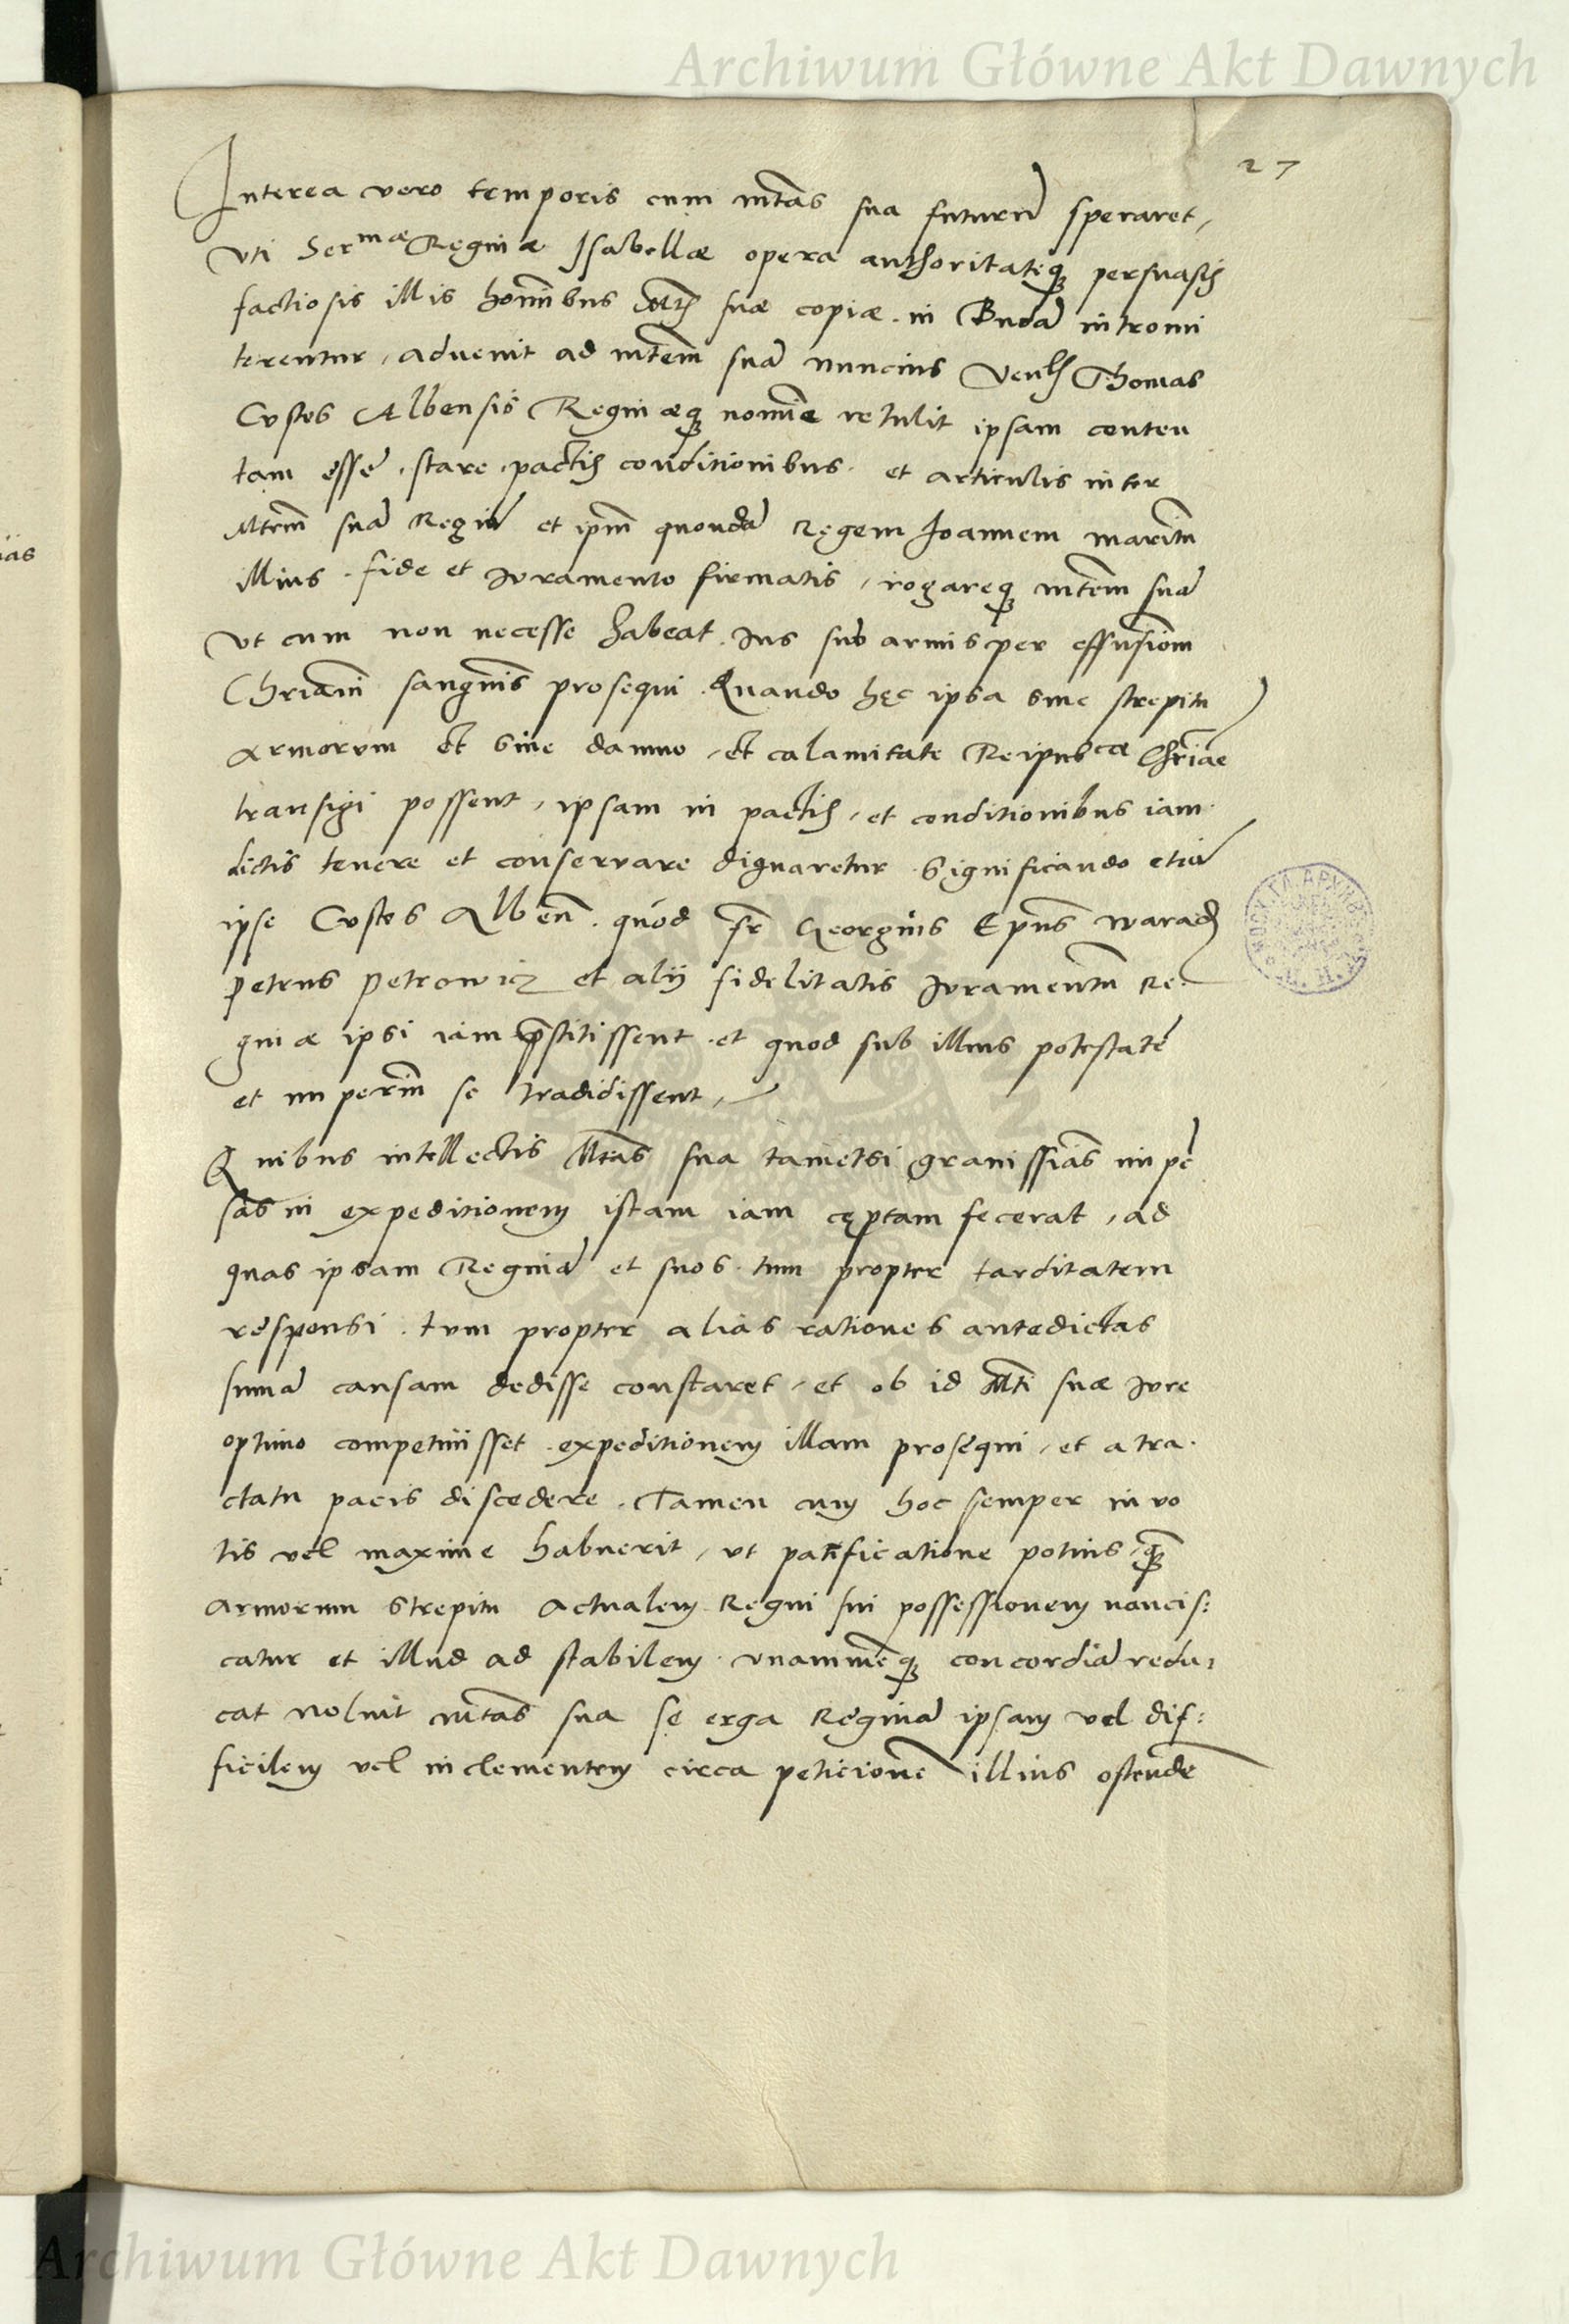 Archiwum Główne Akt Dawnych
27
Interea vero temporis cum mtas sua futurū speraret,
Vti Sermae Reginae Isabellae opera authoritateq3 persuasis
factiosis illis hominibus suae copiae in Budā intromi
terentur, advenit ad mtem suā nuncius Thomas
Custos Albensis Reginaeq3 nomine retulit ipsam conten
tam esse stare pactis conditionibus et articulis inter
Mtem suā Regiā et ipm quondā Regem Joannem maritū
illius fide et Juramento firmatis, rogareq3 mtem suā
Vt cum non necesse habeat Jus suū armis per effusionem
Chriani sanguinis prosequi Quando hęc ipsa sine strepitu
Armorum et sine damno, et calamitate Reipubcae Chrianae
transigi possent, ipsam in pactis, et conditionibus iam
dictis tenere et conservare dignaretur Significando etiā
ipse Custos Alben. quód fr Georgius Epus waradiens
Petrus Petrowicz et alij fidelitatis Juramentū Re-
ginae ipsi iam praestitissent et quod sub illius potestatē
et imperiū se tradidissent,
Quibus intellectis Mtas sua tametsi gravissimas impē
sas in expeditionem istam iam cęptam fecerat, ad
quas ipsam Reginā et suos tum propter tarditatem
responsi tum propter alias rationes antedictas
summā causam dedisse constaret, et ob id Mti suae Jure
optimo competiuisset expeditionem illam prosequi, et a tra-
ctatu pacis discedere. Tamen cum hoc semper in vo
tis vel maxime habuerit, ut pacificatione potius, quam
Armorum strepitu Actualem Regni sui possessionem nancis:
catur et illud ad stabilem unanimemq3 concordiā redu,
cat noluit mtas sua se erga Reginā ipsam vel dif:
ficilem vel inclementem circa peticionē illius ostende
Archiwum Główne Akt Dawnych